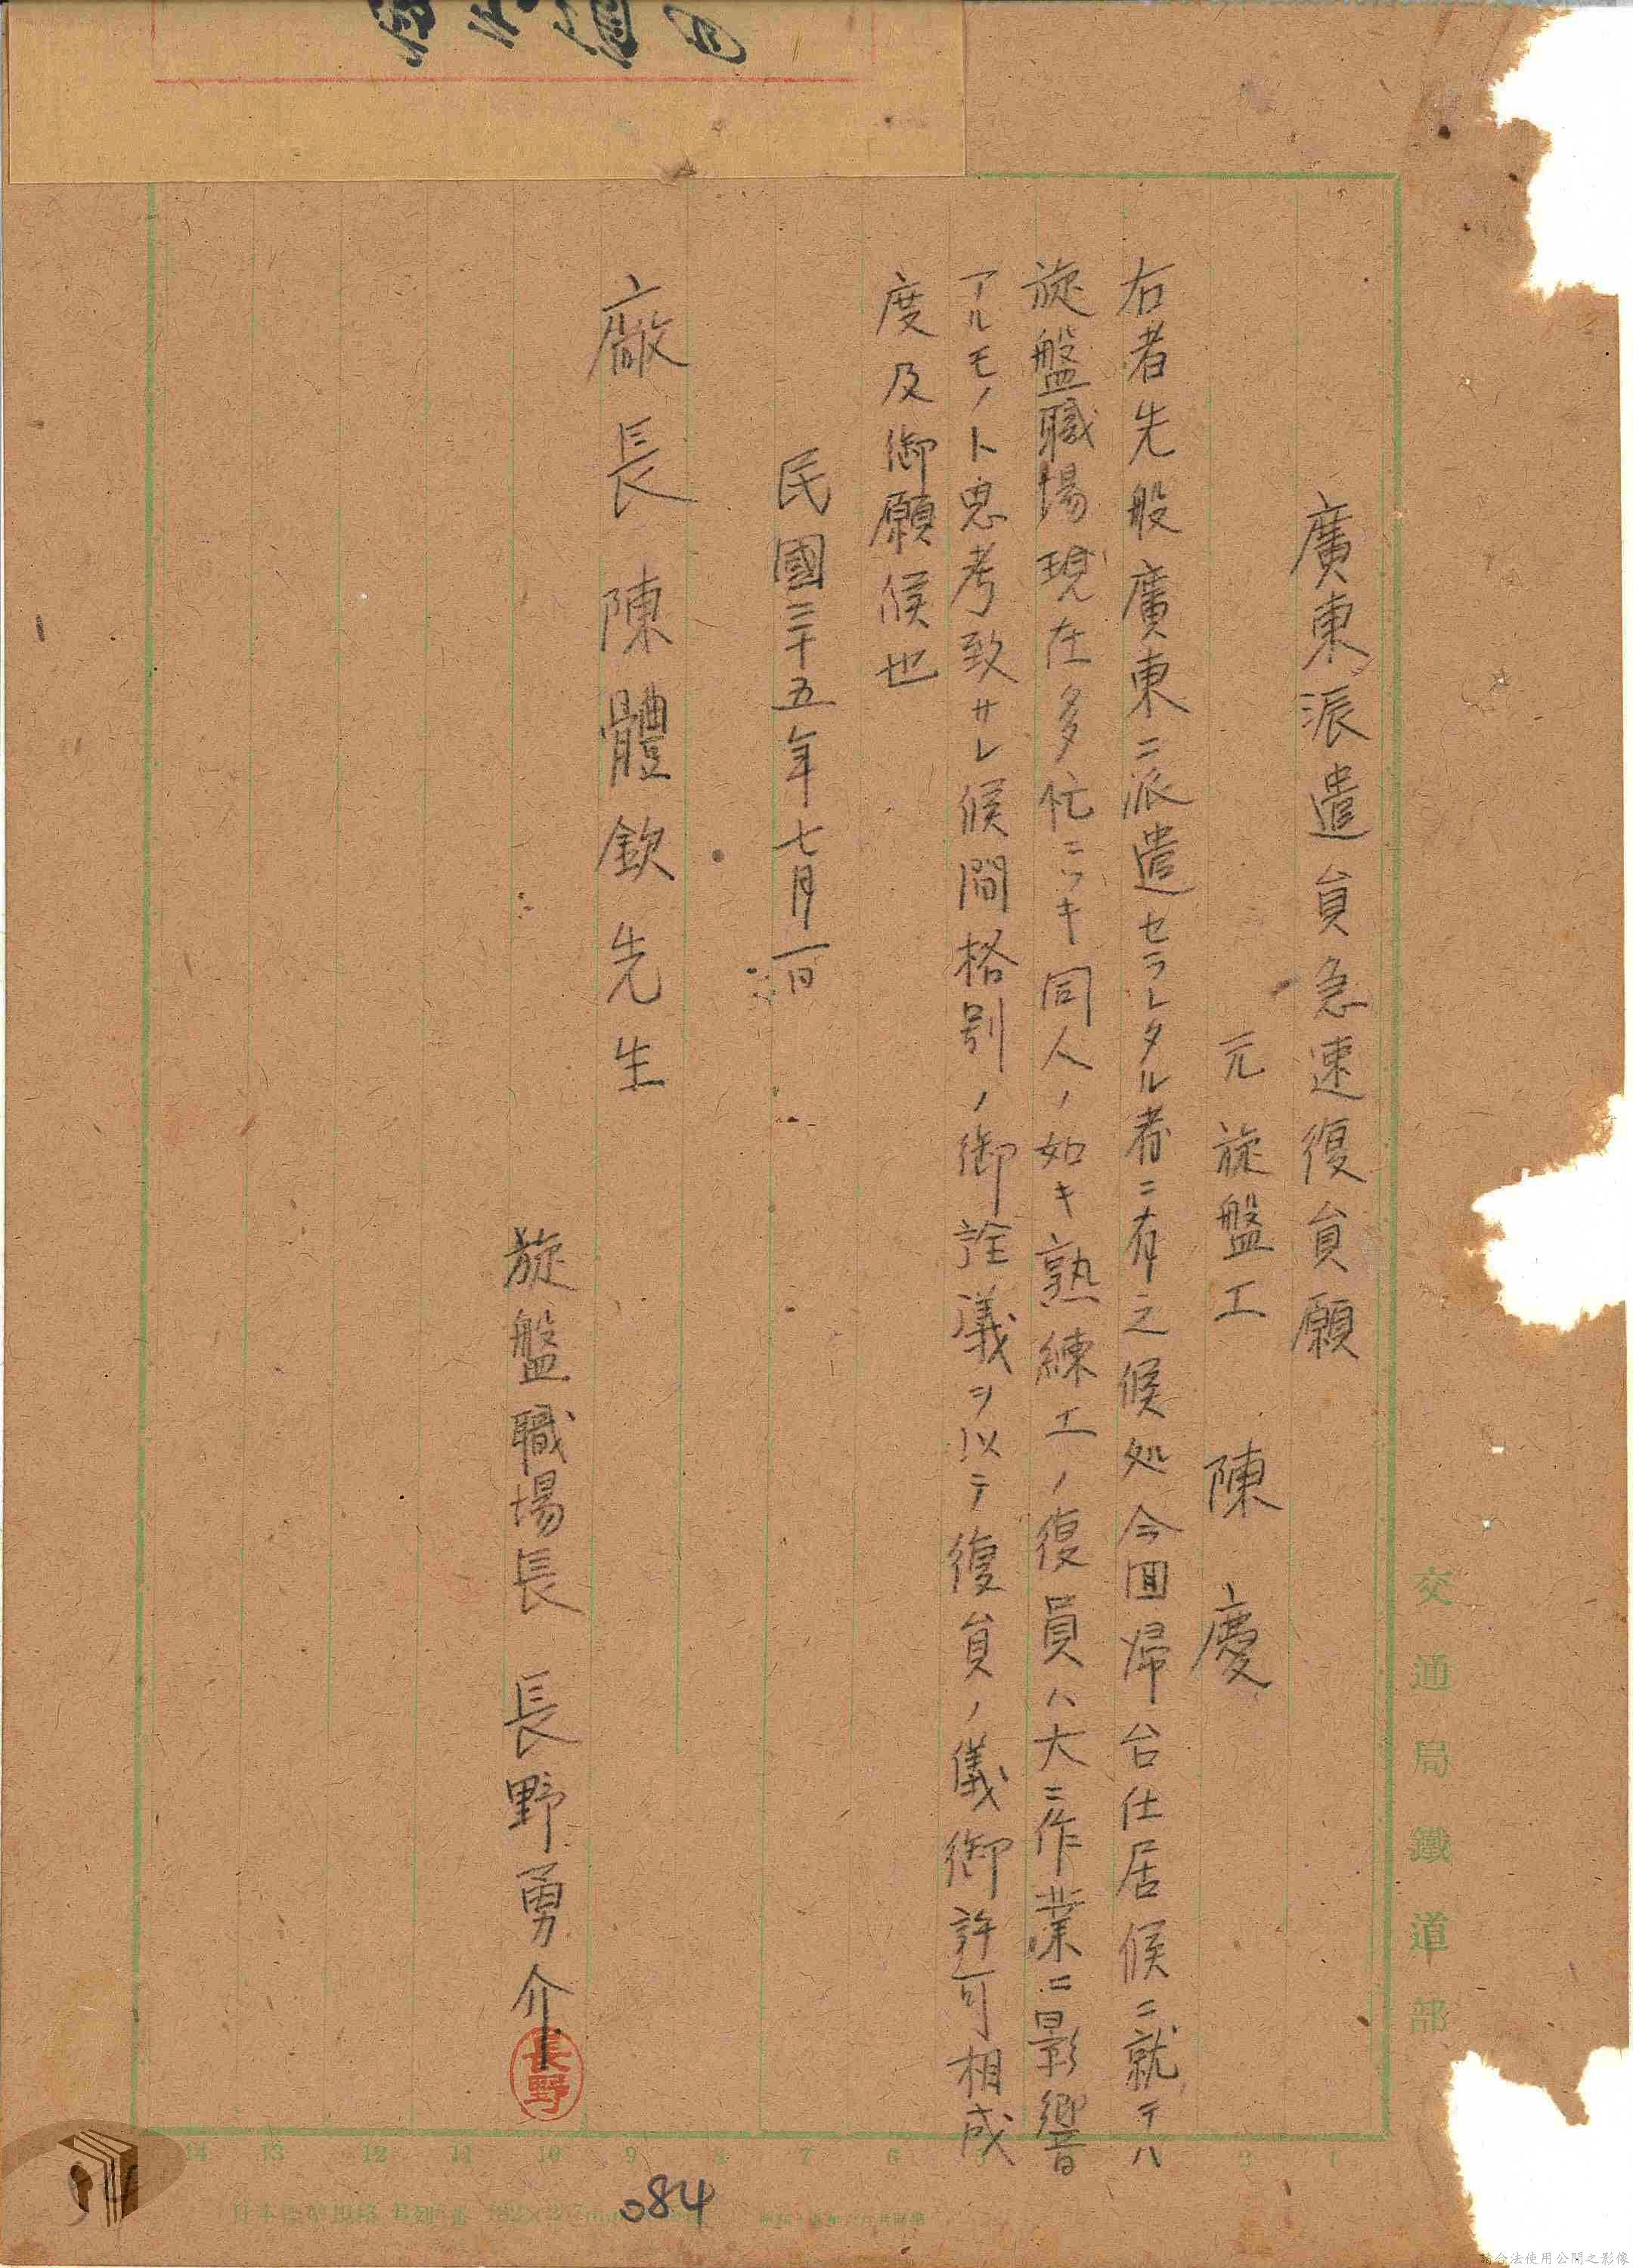 廣東派遣員急速復員願
元旋盤工　陳　慶
右者先般廣東ニ派遣セラレタル者ニ有之候処今回帰台仕居候ニ就テハ
旋盤職場現在多忙ニツキ同人ノ如キ熟練工ノ復員ハ大ニ作業ニ影響
アルモノト思考致サレ候間格別ノ御詮議ヲ以テ復員ノ儀御許可相成
度及御願候也
民國三十五年七月一日
廠長陳體欽先生
旋盤職場長　長野勇介
長野
交通局鐵道部
14 13 12 11 10 9 8 7 6 2 1
084
請合法使用公開之影像